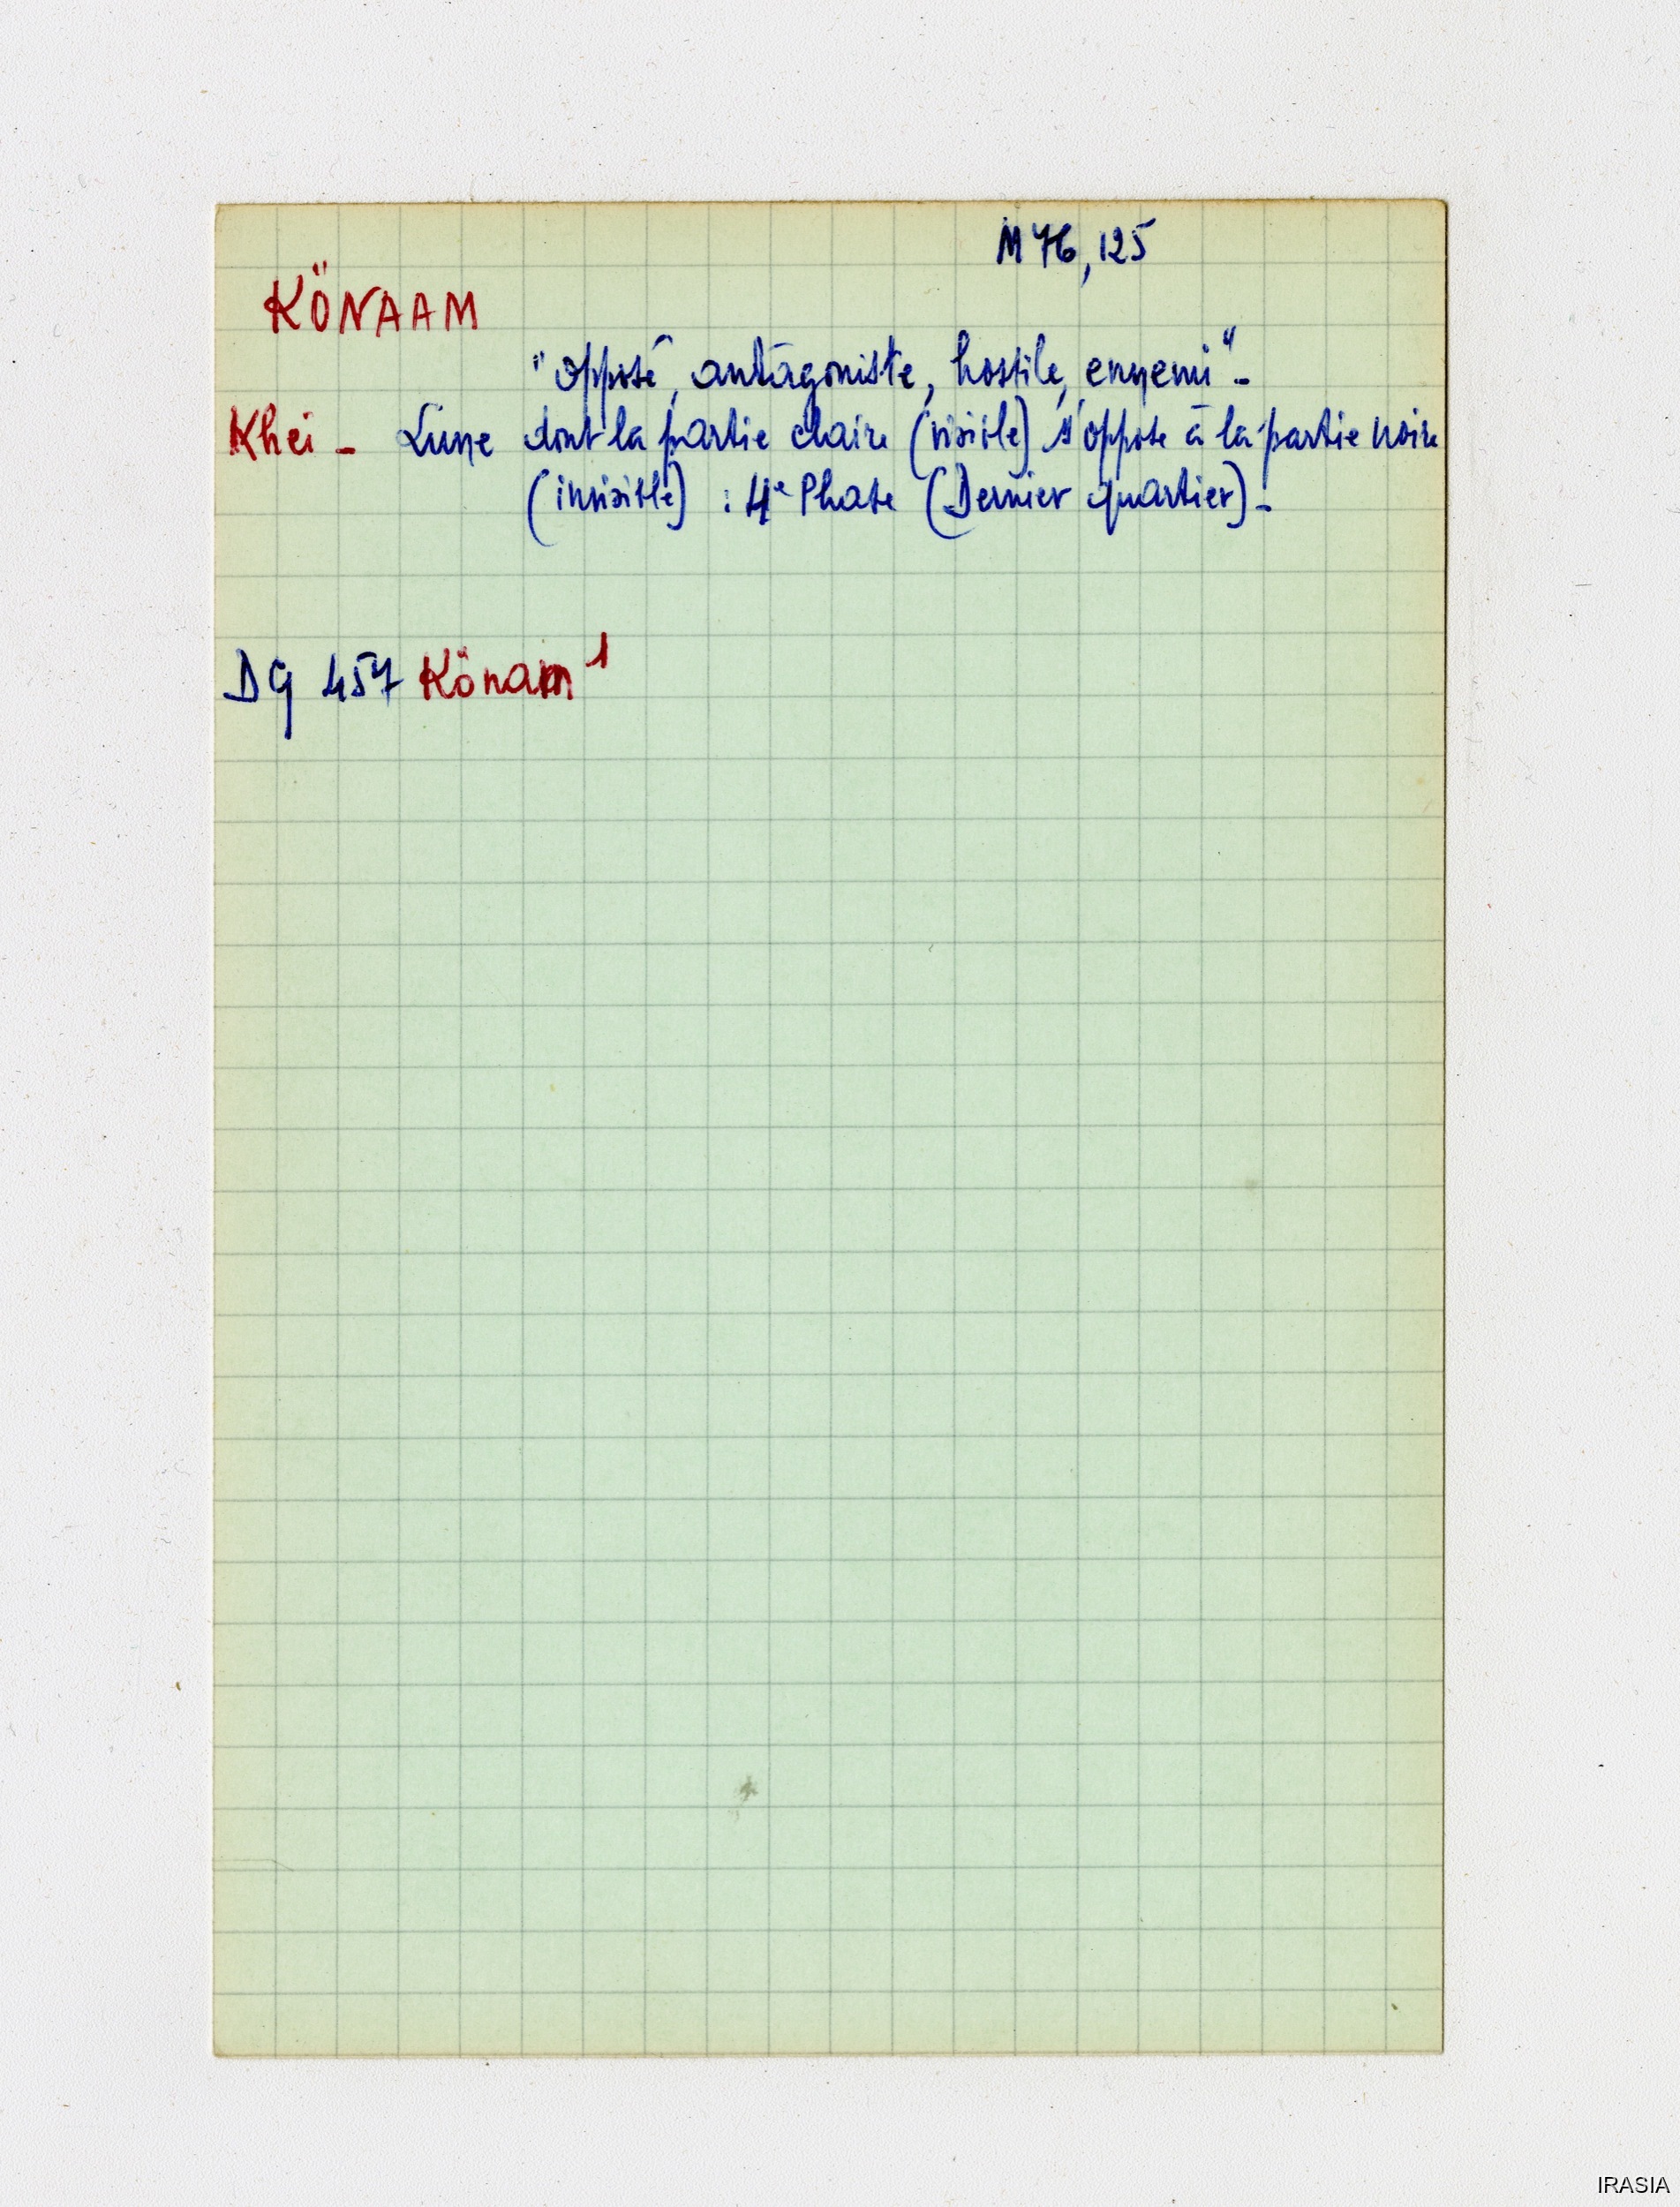 M 76, 125
KÖNAAM
"opposé, antagoniste, hostile, ennemi" -
Khei - Lune dont la partie claire (visible) s'oppose à la partie noire
(invisible) : 4e Phase (Dernier quartier) -
DG 457 Könam 1
IRASIA